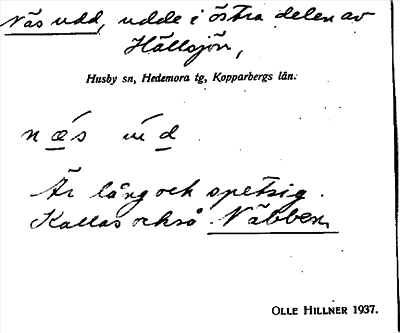 Näs udd, udde i östra delen av
Hällsjön,
Husby sn, Hedemora tg, Kopparbergs län.
næ´s u´d
Är lång och spetsig.
Kallas också Näbben.
OLLE HILLNER 1937.